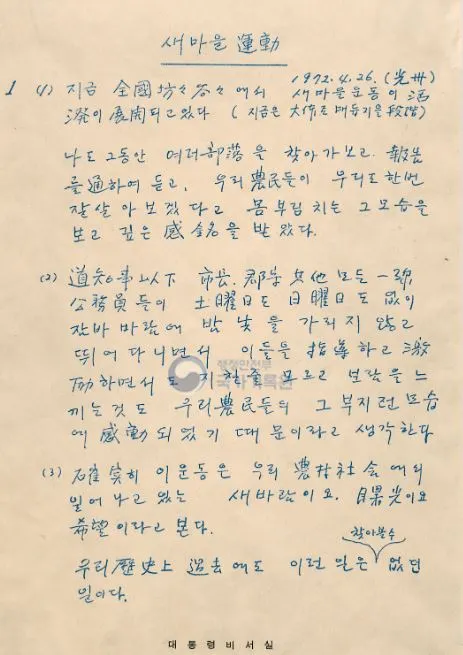 새마을 運動
1972.4.26. (光州)
1 (1) 지금 全國坊々谷々에서 새마을운동이 活
潑이 展開되고 있다 (지금은 大体로 매듭지을 段階)
나도 그동안 여러 部落을 찾아가 보고. 報告
를 通하여 듣고, 우리 農民들이 우리도 한번
잘 살아 보겠다고 몸부림 치는 그 모습을
보고 깊은 感銘을 받았다.
(2) 道知事以下 市長. 郡守 其他 모든 一線
公務員들이 土曜日도 日曜日도 없이
잠바 바람에 밤낮을 가리지 않고
뛰어다니면서 이들을 指導하고 激
励하면서도 지칠줄 모르고 보람을 느
끼는 것도 우리 農民들의 그 부지런 모습
에 感動되었기 때문이라고 생각한다
행정안전부
국가기록원
(3) 確実히 이 운동은 우리 農村社会에서
일어나고 있는 새바람이요. 曙光이요
希望이라고 본다.
찾아볼수
우리 歷史上 過去에도 이런 일은 없던
일이다.
대통령비서실